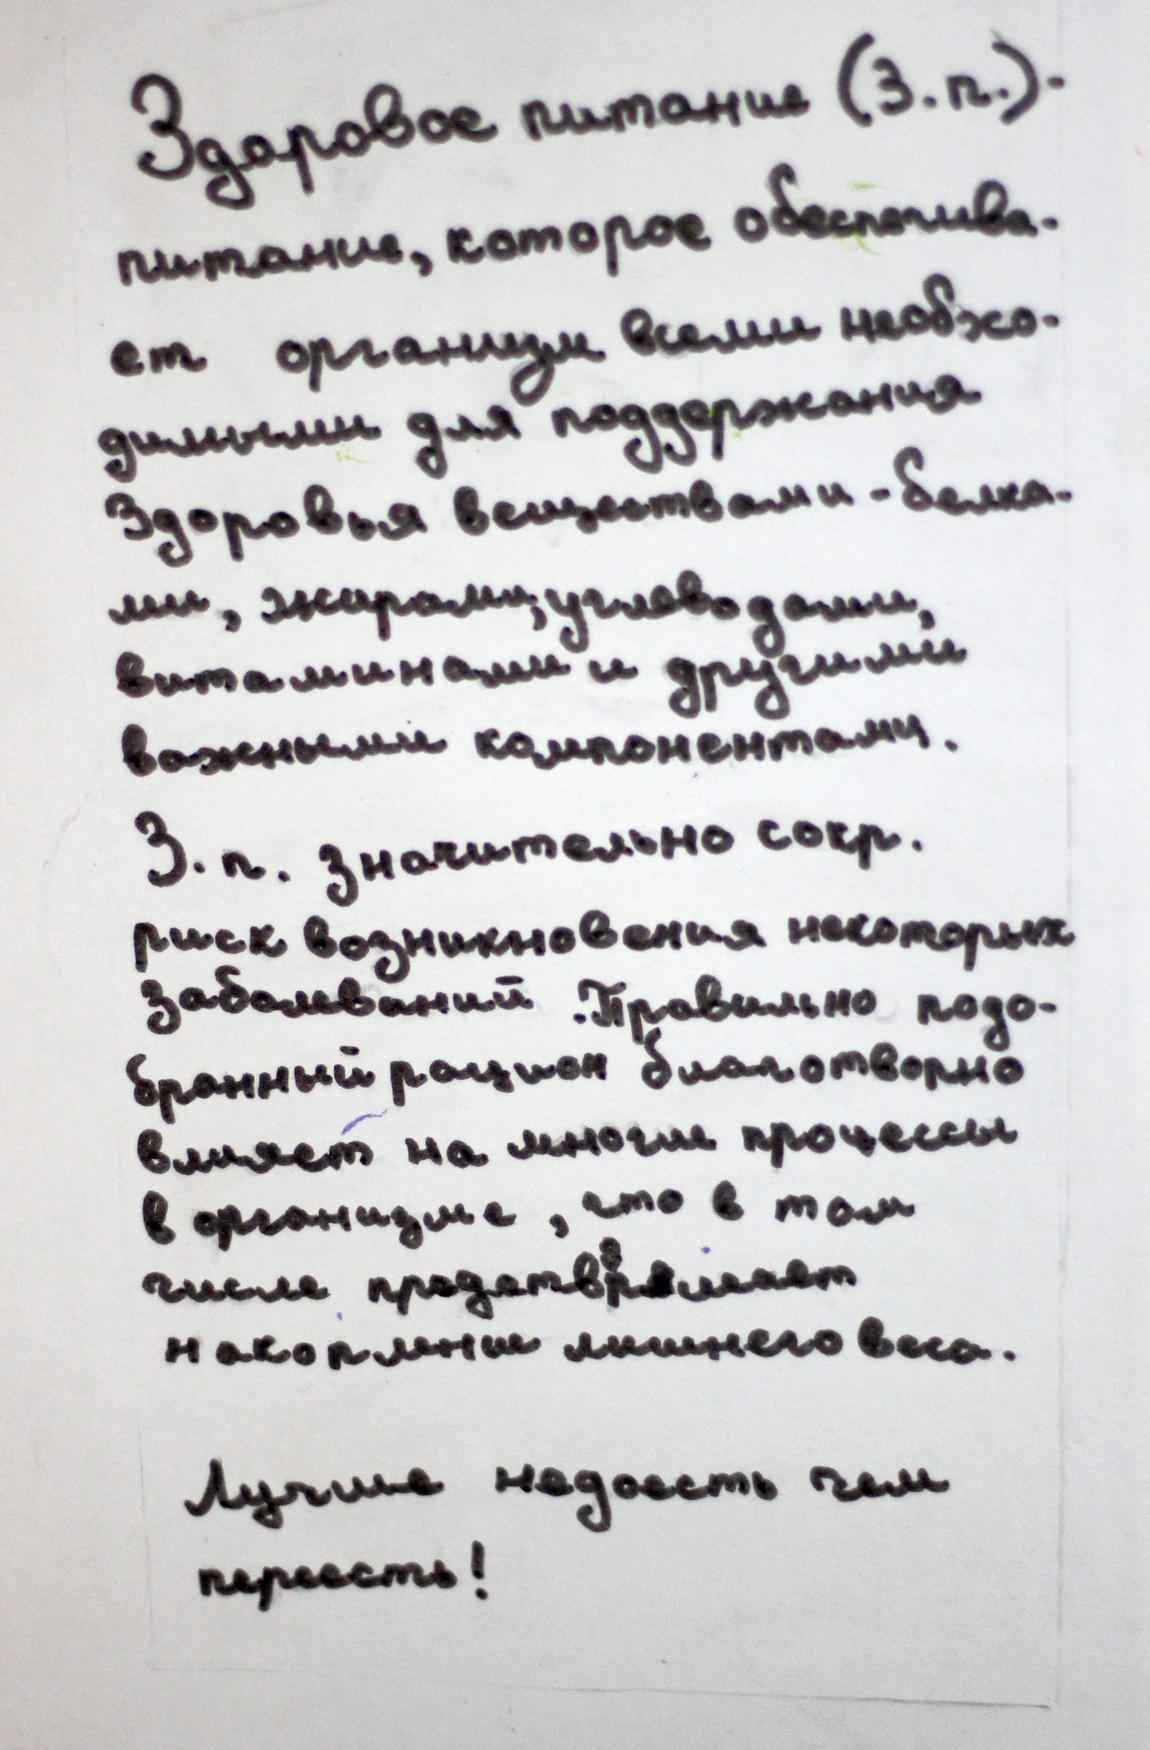 Здоровое питание (З.п.)-
питание, которое обеспечива-
ет организм всеми необхо-
димыми для поддержания
здоровья веществами - белка-
ми, жирами, углеводами,
витаминами и другими
важными компонентами.
З.п. значительно сокр.
риск возникновения некоторых
заболеваний. Правильно подо-
бранный рацион благотворно
влияет на многие процессы
в организме, что в том
числе
накопление лишнего веса.
Лучше недоесть чем
переесть!